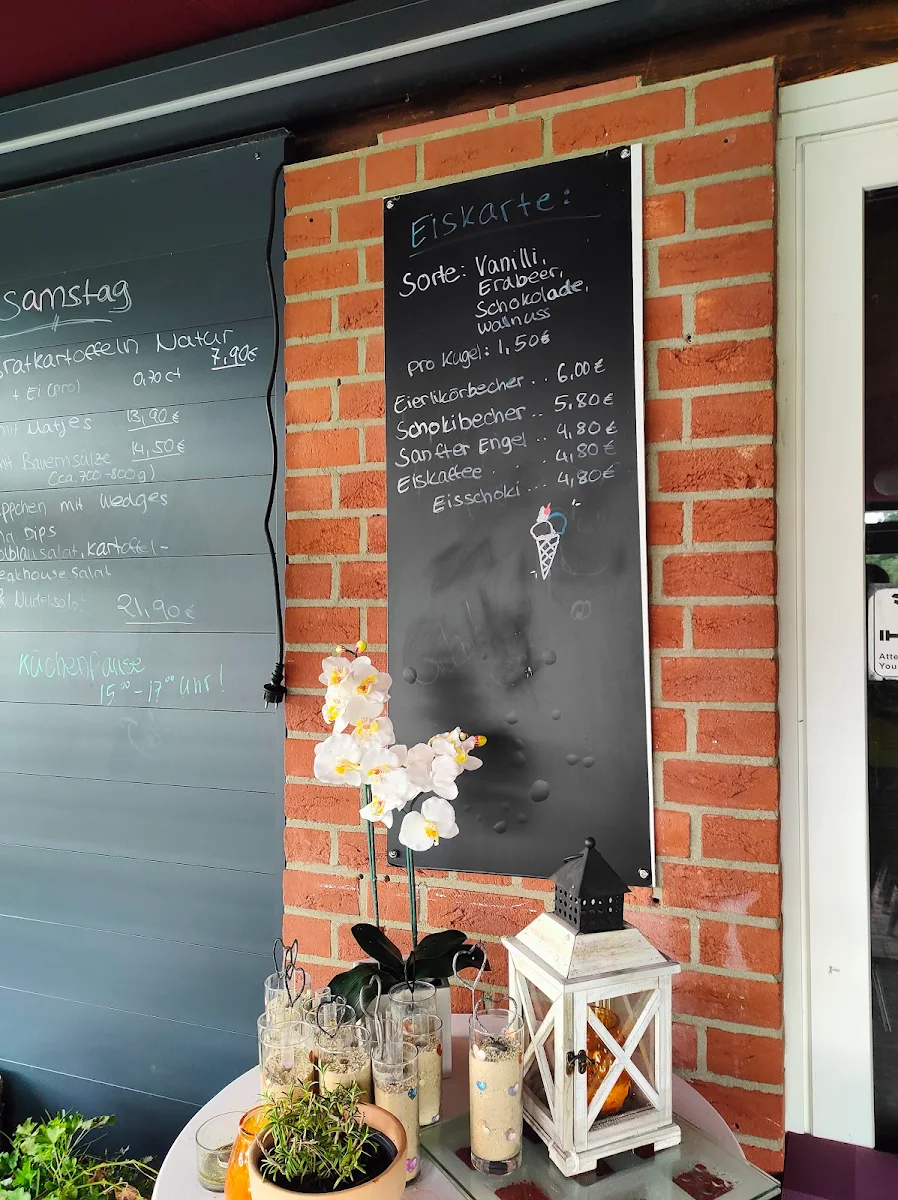 Samstag
Natur
7,90€
+ Ei
0,70 ct
Matjes 13,90 €
Bauernsülze 14,50€
(ca. 700-800g)
mit Wedges
Dips
salat, Kartoffel-
salat
21,90 €
Küchenpause
15⁰⁰ - 17⁰⁰ Uhr!
Eiskarte:
Sorte: Vanilli,
Erdbeer,
Schokolade,
Wallnuss
pro Kugel: 1,50€
Eierlikörbecher .. 6,00€
Schokibecher .. 5,80€
Sanfter Engel .. 4,80€
Eiskaffee . 4,80€
Eisschoki ... 4,80€
Atte
You